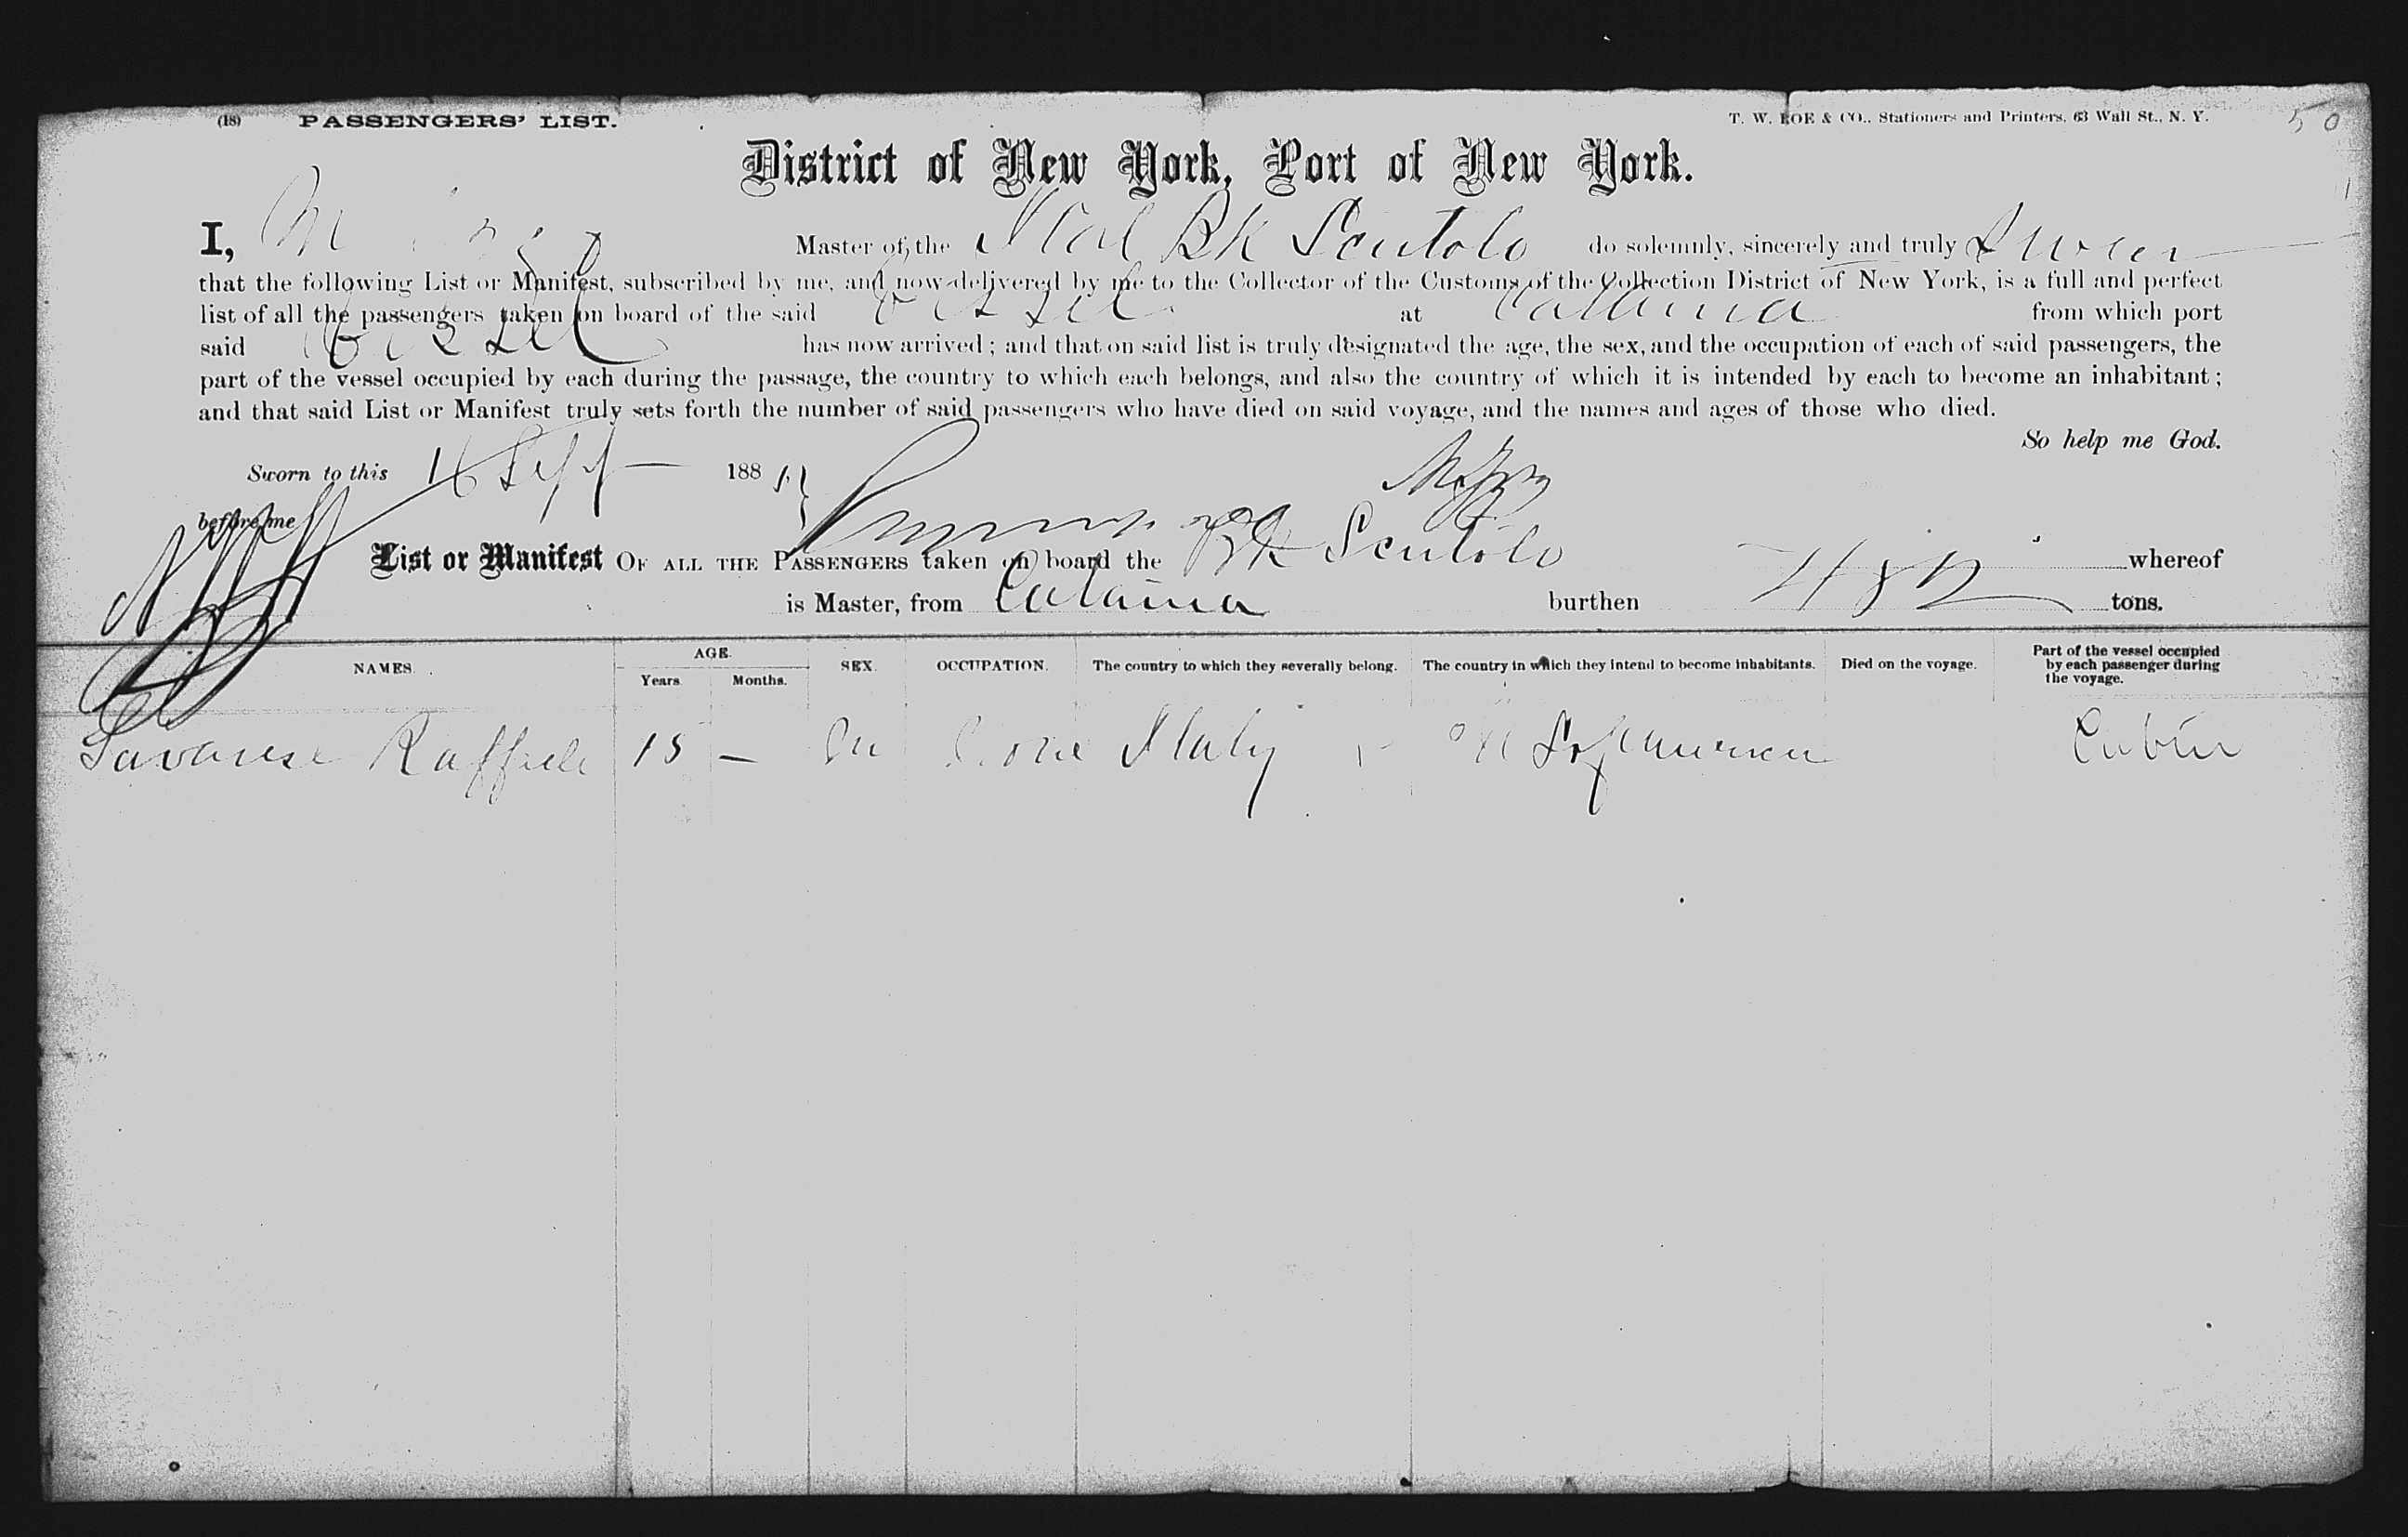 (18) PASSENGERS' LIST. T. W. ROE & CO., Stationers and Printers, 63 Wall St., N. Y. 50
District of New York, Port of New York.
I, Master of the Ital Bk Scutolo do solemnly, sincerely and truly Swear
that the following List or Manifest, subscribed by me, and now delivered by me to the Collector of the Customs of the Collection District of New York, is a full and perfect
list of all the passengers taken on board of the said Vessel at Catania from which port
said Vessel has now arrived; and that on said list is truly designated the age, the sex, and the occupation of each of said passengers, the
part of the vessel occupied by each during the passage, the country to which each belongs, and also the country of which it is intended by each to become an inhabitant;
and that said List or Manifest truly sets forth the number of said passengers who have died on said voyage, and the names and ages of those who died.
So help me God.
Sworn to this 16 Sept 188
before me
List or Manifest OF ALL THE PASSENGERS taken on board the Bk Scutolo whereof
is Master, from Catania burthen 482 tons.
NAMES. AGE. Years. Months. SEX. OCCUPATION. The country to which they severally belong. The country in which they intend to become inhabitants. Died on the voyage. Part of the vessel occupied by each passenger during the voyage.
Savarese Raffiele 15 — M None Italy America Cabin